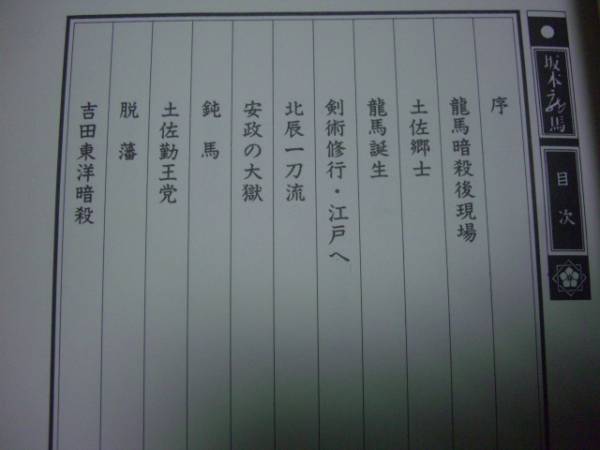 坂本龍馬
目次
序
龍馬暗殺後現場
土佐郷士
龍馬誕生
剣術修行・江戸へ
北辰一刀流
安政の大獄
鈍馬
土佐勤王党
脱藩
吉田東洋暗殺